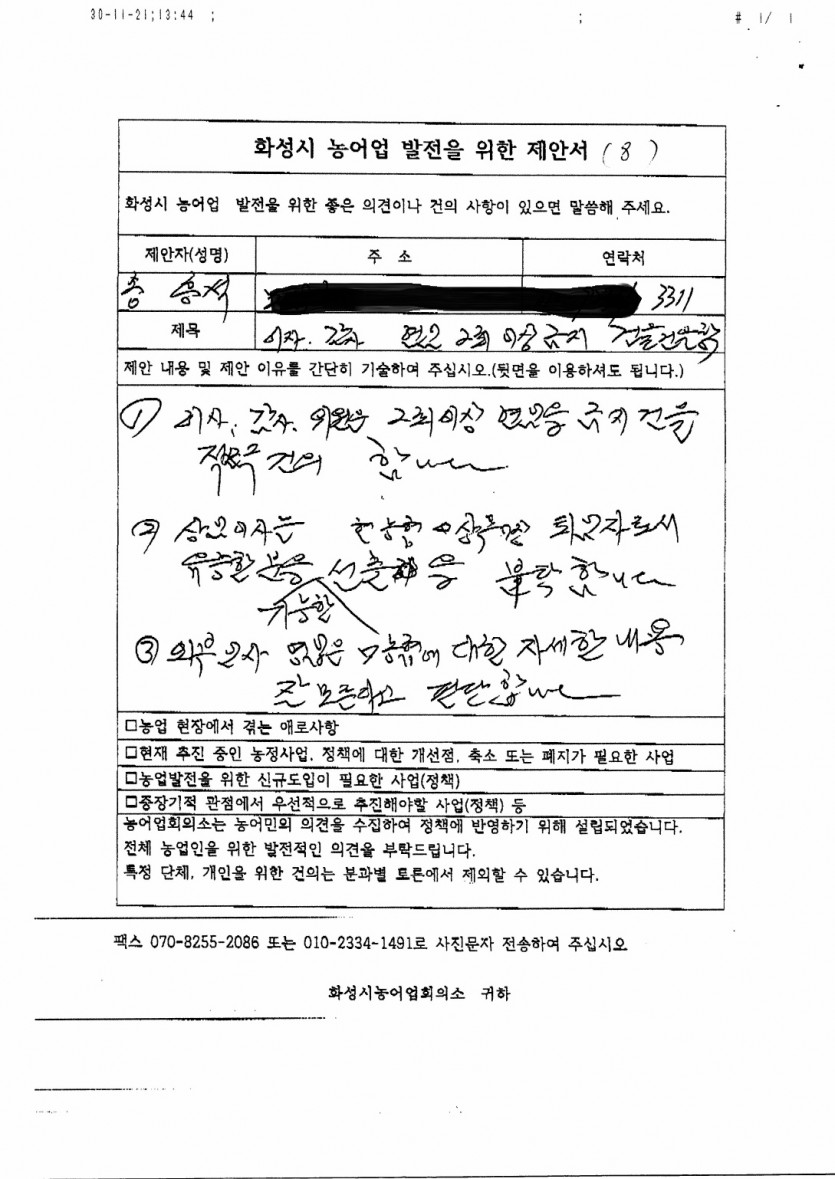 30-11-21;13:44 ; ; # 1/ 1
화성시 농어업 발전을 위한 제안서 ( 8 )
화성시 농어업 발전을 위한 좋은 의견이나 건의 사항이 있으면 말씀해 주세요.
제안자(성명) 주 소 연락처
홍석 3311
제목 이사. 감사 연임 2회 이상 금지
제안 내용 및 제안 이유를 간단히 기술하여 주십시오.(뒷면을 이용하셔도 됩니다.)
① 이사, 감사, 위원은 2회이상 연임을 금지 건을
적극 건의 함니다
② 상임이사는 현 농협 퇴임자로서
유능한 분을 선출 을 부탁 함니다
가능한
③ 외부인사 영입은 농협에 대한 자세한 내용
잘 모른다고 판단함니다
□농업 현장에서 겪는 애로사항
□현재 추진 중인 농정사업, 정책에 대한 개선점, 축소 또는 폐지가 필요한 사업
□농업발전을 위한 신규도입이 필요한 사업(정책)
□중장기적 관점에서 우선적으로 추진해야할 사업(정책) 등
농어업회의소는 농어민의 의견을 수집하여 정책에 반영하기 위해 설립되었습니다.
전체 농업인을 위한 발전적인 의견을 부탁드립니다.
특정 단체, 개인을 위한 건의는 분과별 토론에서 제외할 수 있습니다.
팩스 070-8255-2086 또는 010-2334-1491로 사진문자 전송하여 주십시오
화성시농어업회의소 귀하